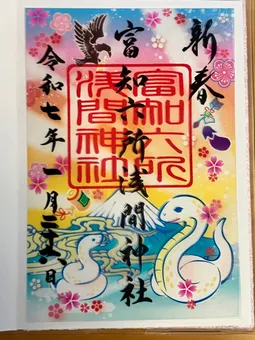 新春
富知六所浅間神社
令和七年一月二十八日
富知六所
浅間神社